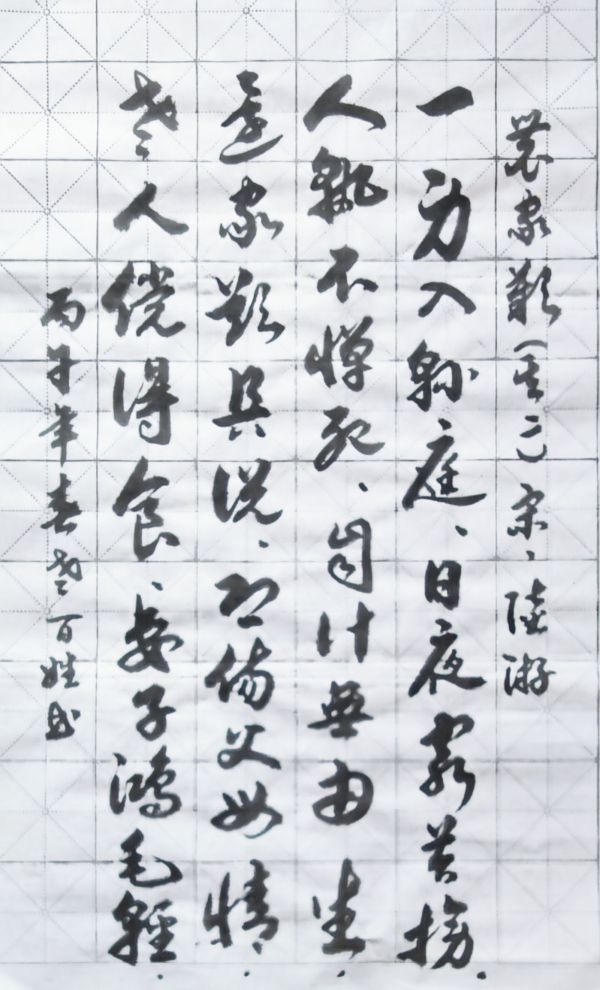 農家歎(其二)宋、陸游
一身入縣庭、日夜窮笞搒.
人孰不憚死、自計無由生.
還家欲具說、恐傷父母情.
老人儻得食、妻子鴻毛輕.
丙子年春老百姓